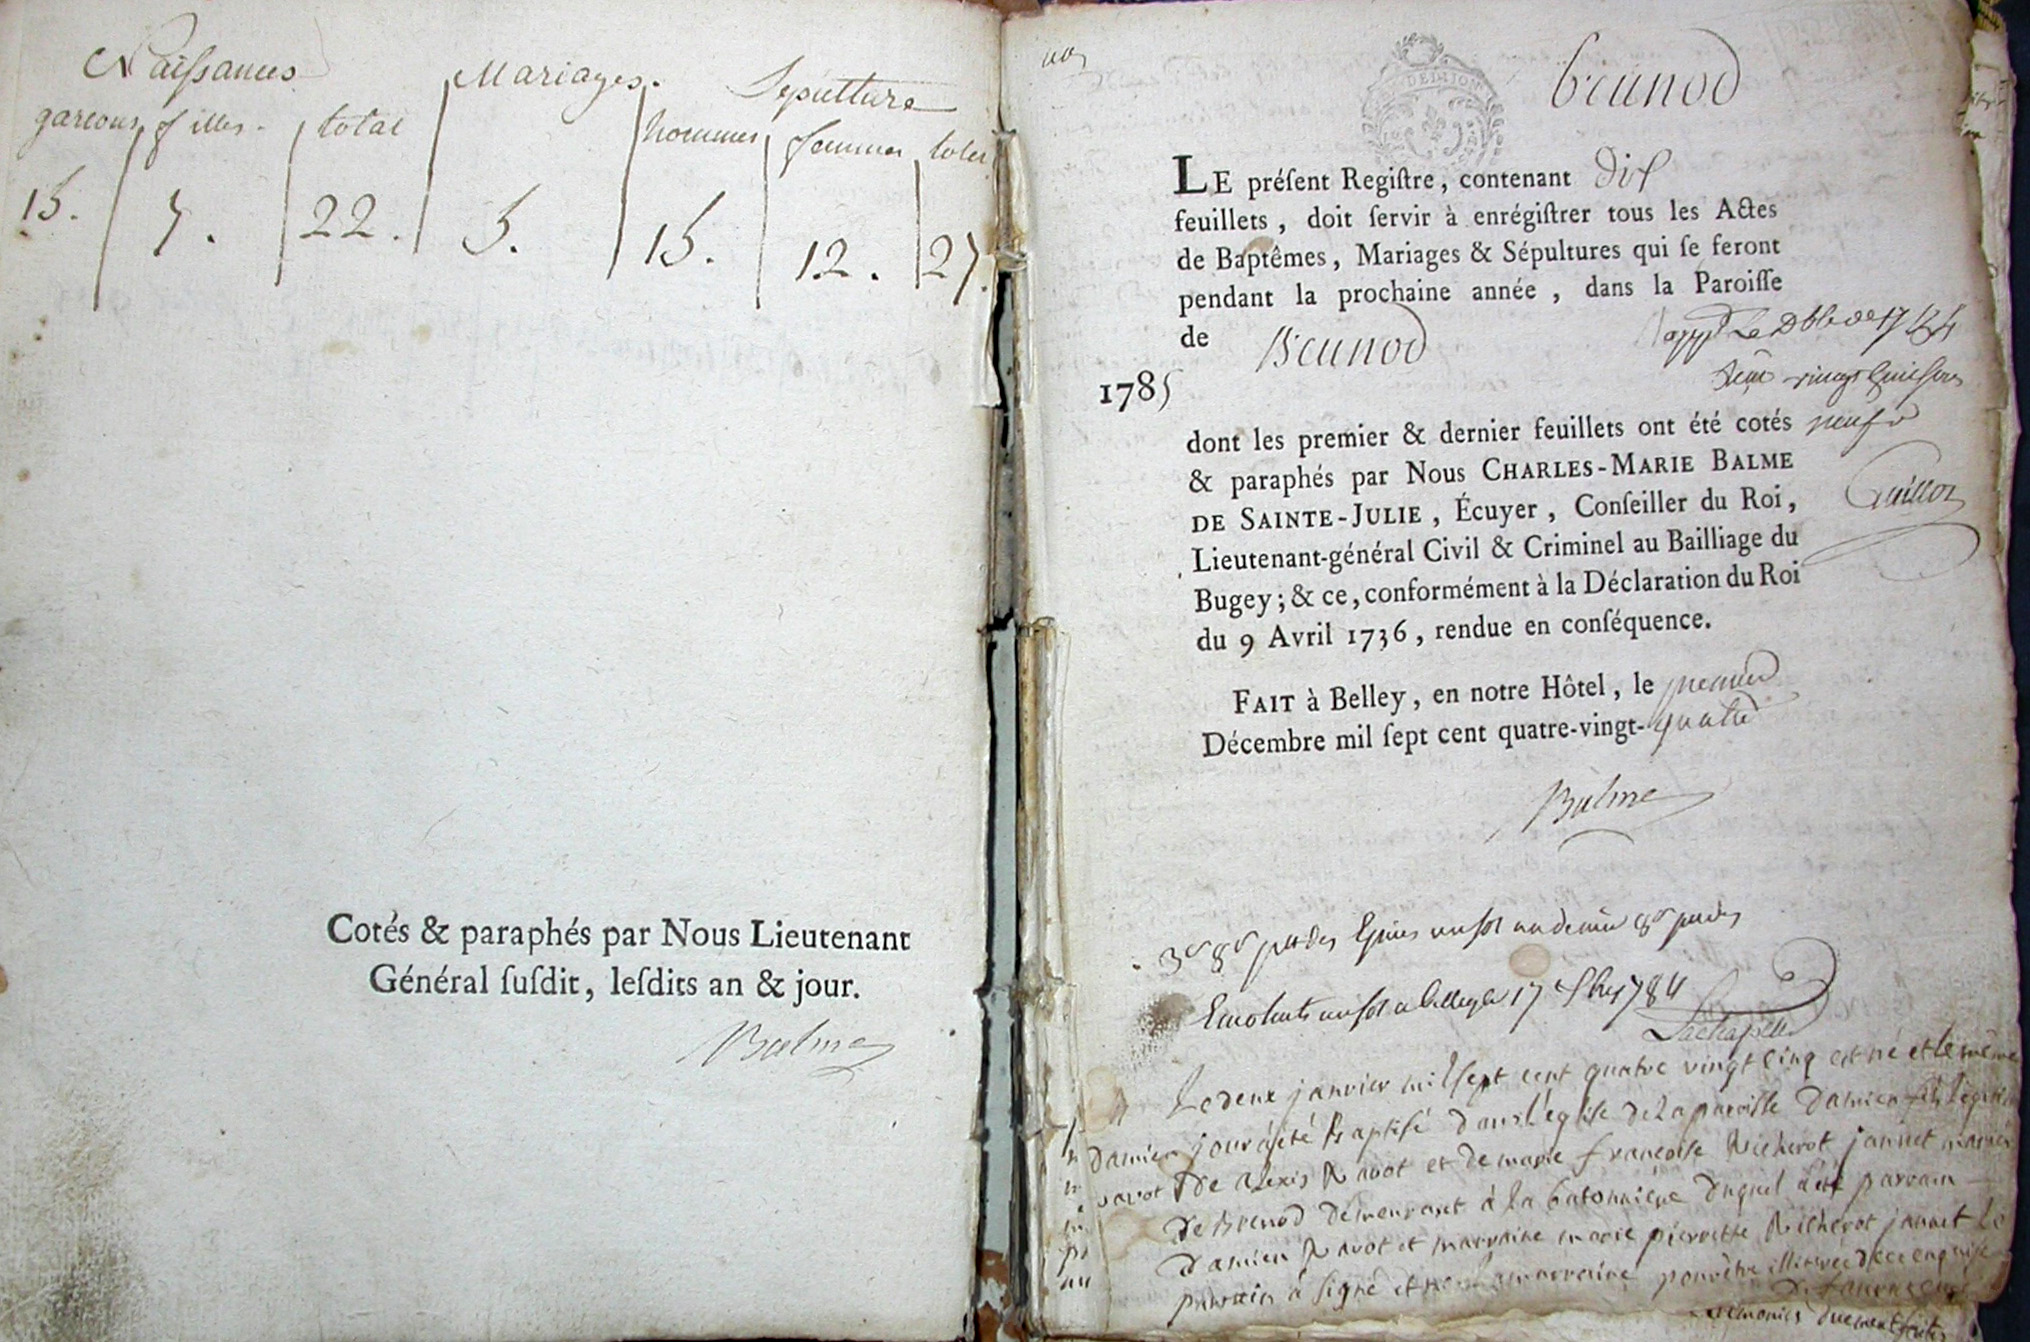 Naissances Mariages. Sepulture
garcons filles. total hommes femmes total
15. 7. 22. 5. 15. 12. 27.
Cotés & paraphés par Nous Lieutenant
Général ſuſdit, leſdits an & jour.
Balme
brenod
LE préſent Regiſtre, contenant dix
feuillets, doit ſervir à enrégiſtrer tous les Actes
de Baptêmes, Mariages & Sépultures qui ſe feront
pendant la prochaine année, dans la Paroiſſe
de Brenod
1785
dont les premier & dernier feuillets ont été cotés
& paraphés par Nous CHARLES-MARIE BALME
DE SAINTE-JULIE, Écuyer, Conſeiller du Roi,
Lieutenant-général Civil & Criminel au Bailliage du
Bugey; & ce, conformément à la Déclaration du Roi
du 9 Avril 1736, rendue en conſéquence.
FAIT à Belley, en notre Hôtel, le premier
Décembre mil ſept cent quatre-vingt-quatre
Balme
neuf
Guillon
17 1784
Lachapelle
Le deux janvier mil sept cent quatre vingt cinq est né et le même
damien jour a été baptisé dans l'eglise de la paroisse damien fils legitime
savot de alexis savot et de marie francoise Richerot jannet mariés
de Brenod demeurant à la batonniere duquel a été parrain
damien savot et marraine marie pierrette Richerot jannet le
parrain à signé et non la marraine pour être illitérée de ce enquise
ceremonies duement faites